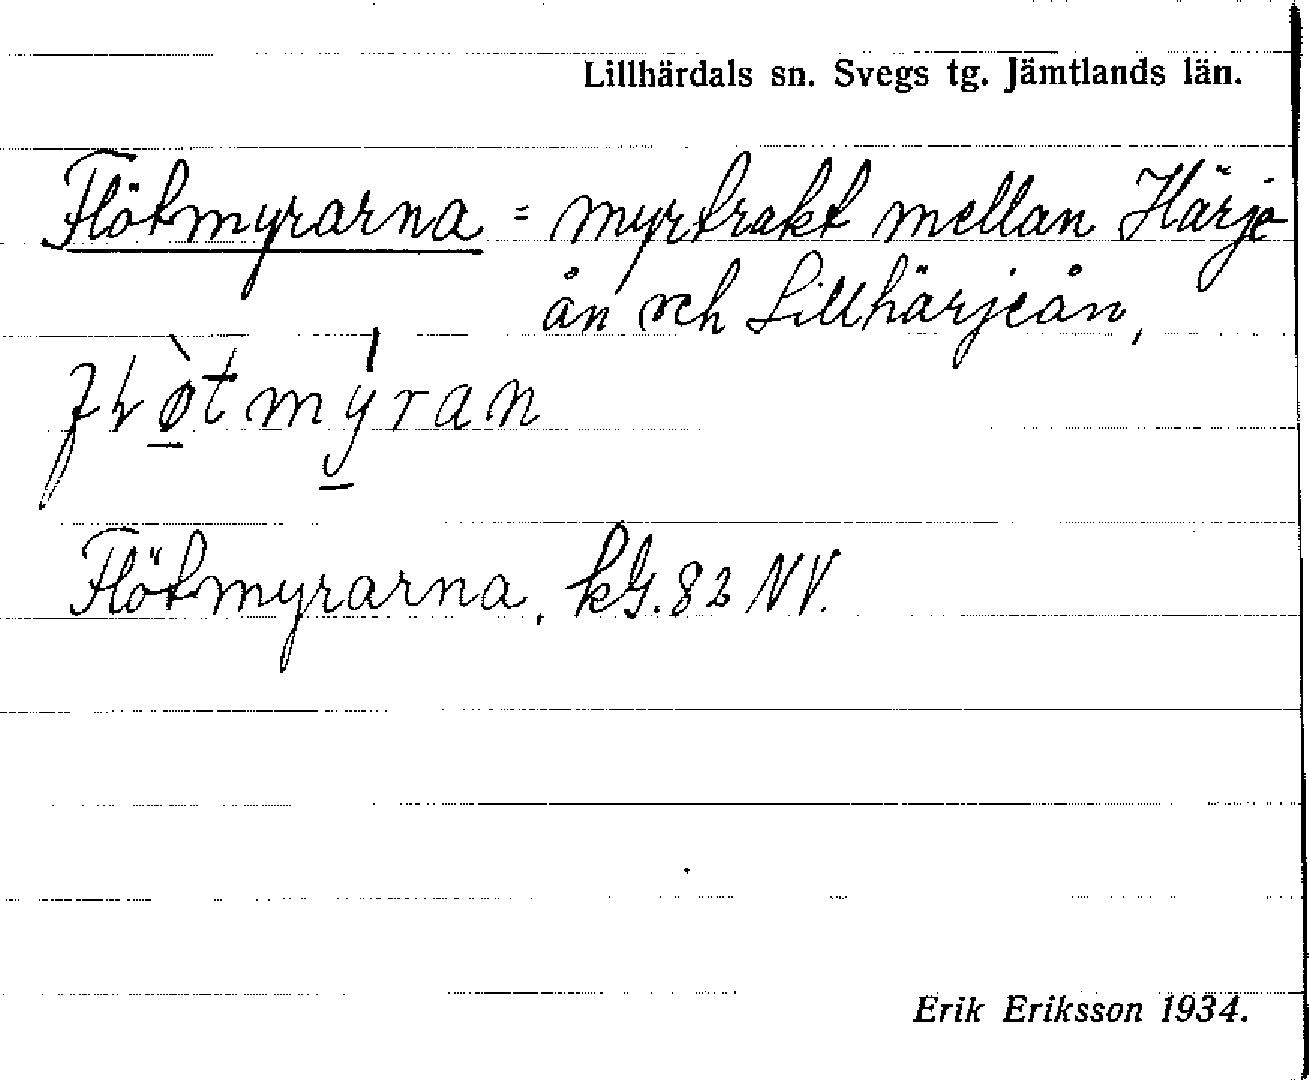 Lillhärdals sn. Svegs tg. Jämtlands län.
Flötmyrarna = myrtrakt mellan Härje
ån och Lillhärjeån,
Flötmyrarna. kG. 82 NV.
Erik Eriksson 1934.